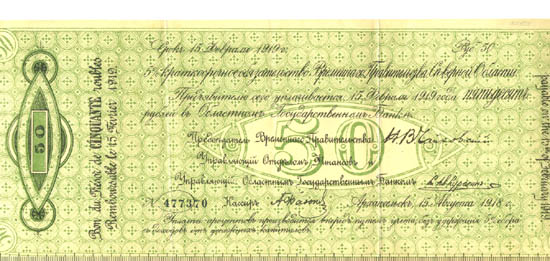 Срокъ 15 Февраля 1919 г. Руб. 50
5% Краткосрочное обязательство Временнаго Правительства Сѣверной Области.
Предъявителю сего уплачивается, 15 Февраля 1919 года пятьдесятъ
рублей въ Областномъ Государственномъ Банкѣ.
Предсѣдатель Временнаго Правительства
и
Управляющій Отдѣломъ Финансовъ
Управляющій Областнымъ Государственнымъ Банкомъ
№ 477370 Кассиръ Архангельскъ, 15 Августа 1918 г.
Уплата процентовъ производится впередъ путемъ учета, съ удержаніемъ 5% сбора
съ доходовъ отъ денежныхъ капиталовъ.
50
50
Bon du Trésor de CINQUANTE roubles
Remboursable le 15 Février 1919.